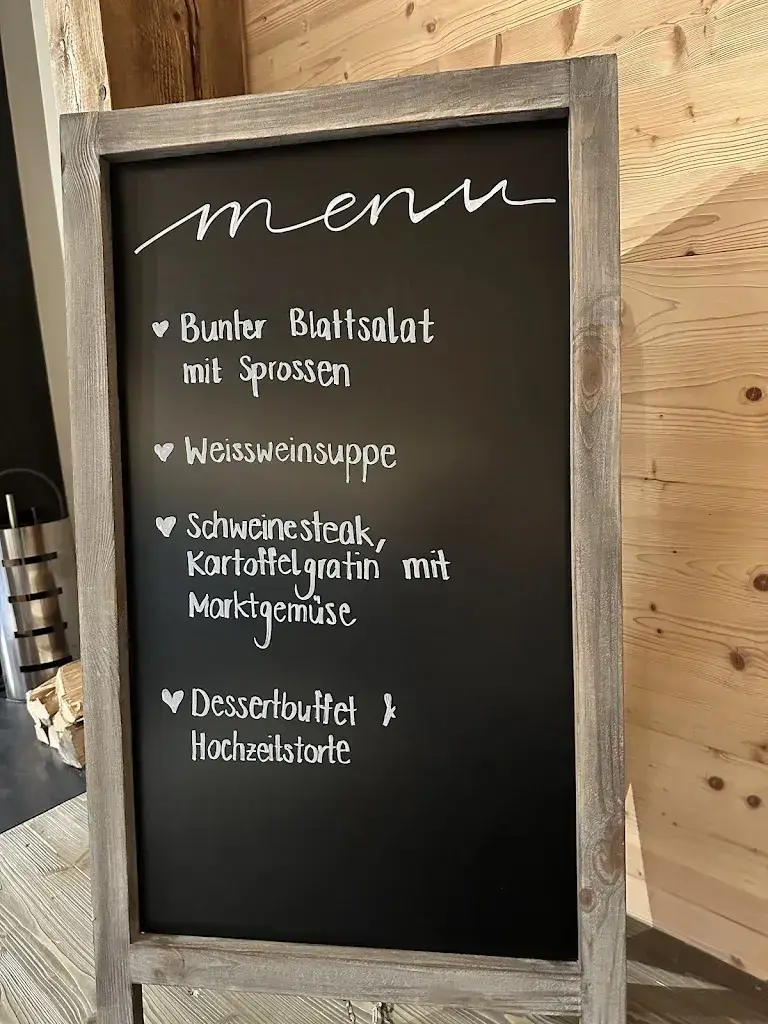 menu
♥ Bunter Blattsalat
mit Sprossen
♥ Weissweinsuppe
♥ Schweinesteak,
Kartoffelgratin mit
Marktgemüse
♥ Dessertbuffet &
Hochzeitstorte